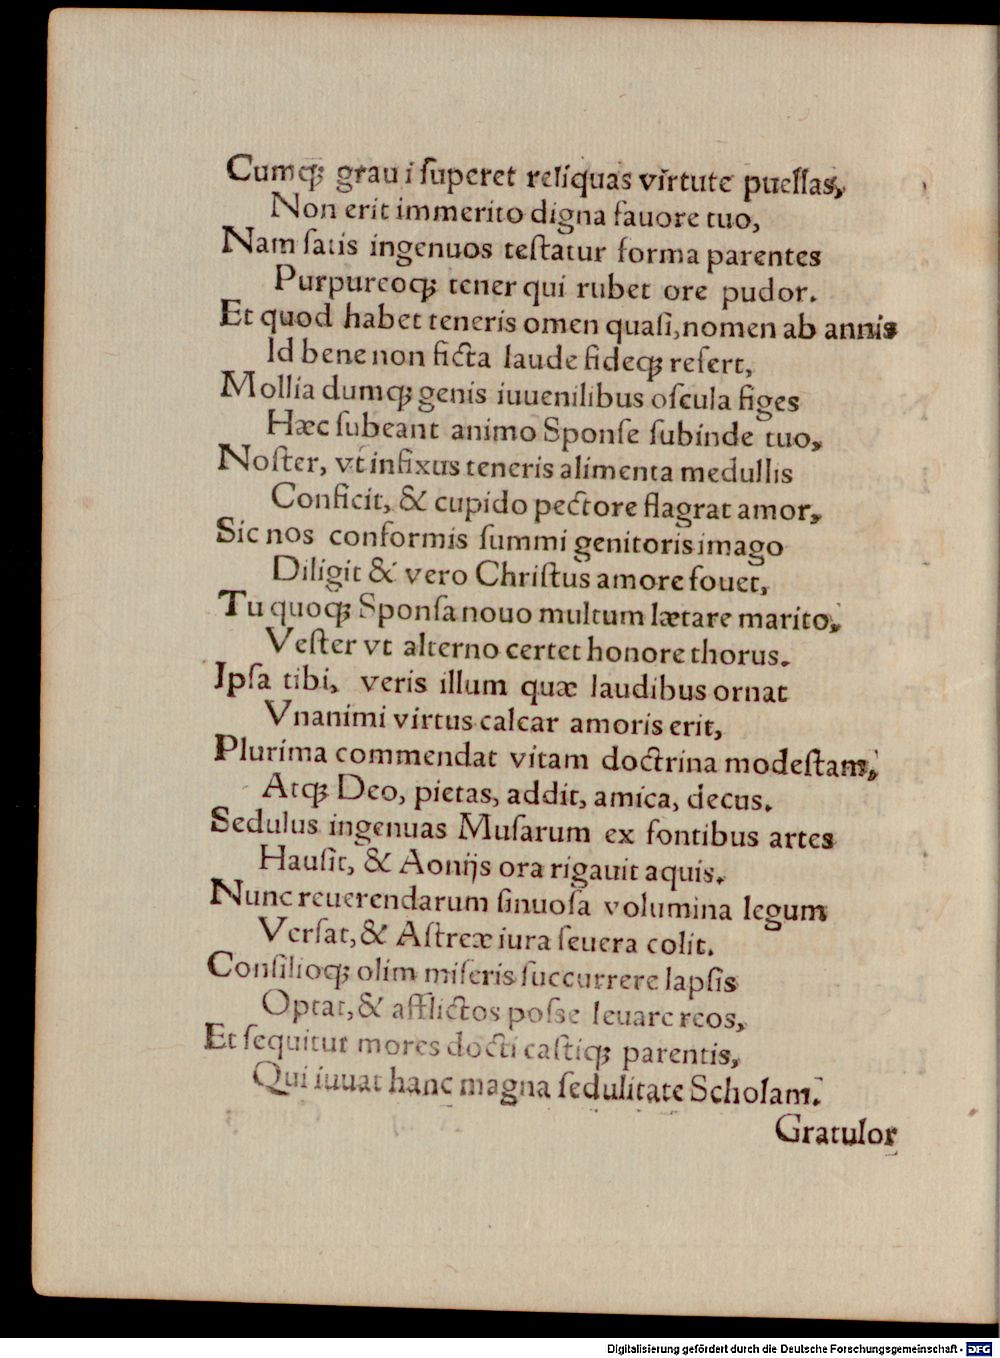 Cumq; graui ſuperet reliquas virtute puellas,
Non erit immerito digna fauore tuo,
Nam ſatis ingenuos teſtatur forma parentes
Purpureoq; tener qui rubet ore pudor.
Et quod habet teneris omen quaſi, nomen ab annis
Id bene non ficta laude fideq; refert,
Mollia dumq; genis iuuenilibus oſcula figes
Hæc ſubeant animo Sponſe ſubinde tuo,
Noſter, vt infixus teneris alimenta medullis
Conficit, & cupido pectore flagrat amor,
Sic nos conformis ſummi genitoris imago
Diligit & vero Chriſtus amore fouet,
Tu quoq; Sponſa nouo multum lætare marito,
Veſter vt alterno certet honore thorus.
Ipſa tibi, veris illum quæ laudibus ornat
Vnanimi virtus calcar amoris erit,
Plurima commendat vitam doctrina modeſtam,
Atq; Deo, pietas, addit, amica, decus.
Sedulus ingenuas Muſarum ex fontibus artes
Hauſit, & Aonijs ora rigauit aquis.
Nunc reuerendarum ſinuoſa volumina legum
Verſat, & Aſtreæ iura ſeuera colit.
Conſilioq; olim miſeris ſuccurrere lapſis
Optat, & afflictos poſse leuare reos,
Et ſequitur mores docti caſtiq; parentis,
Qui iuuat hanc magna ſedulitate Scholam.
Gratulor
Digitalisierung gefördert durch die Deutsche Forschungsgemeinschaft - DFG